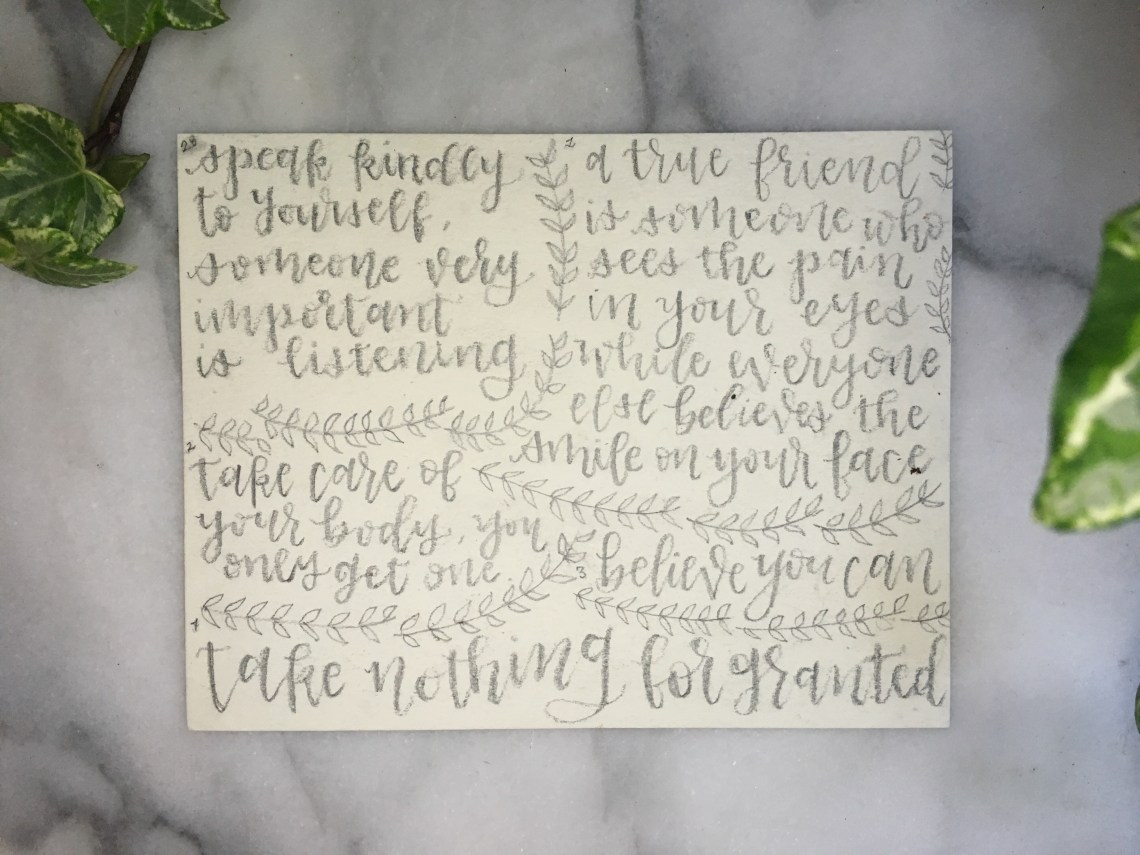 28
speak kindly
to yourself,
someone very
important
is listening
1
a true friend
is someone who
sees the pain
in your eyes
while everyone
else believes the
smile on your face
2
take care of
your body, you
only get one.
3
believe you can
4
take nothing for granted